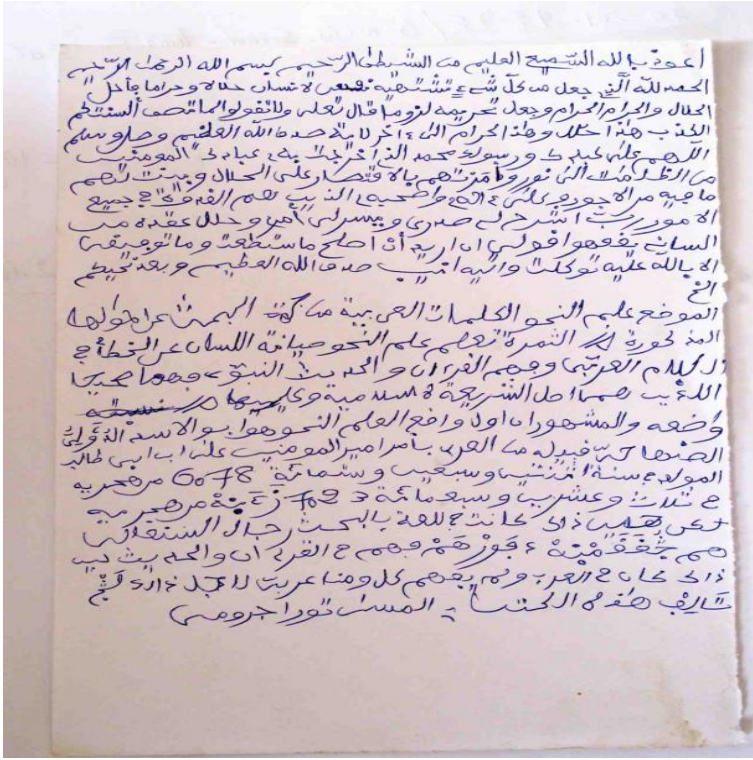 اعوذ بالله السميع العليم من الشيطن الرجيم بسم الله الرحمن الرحيم
الحمد لله الذي جعل من كل شيء تشتهيه نفس لانسان حلالا وحراما فأحل
الحلال والحرام الحرام وجعل تحريمه لزوما قال تعلى ولا تقولوا لما تصف ألسنتكم
الكذب هذا حلل وهذا الحرام الى ءاخر لاية صدق الله العظيم وصل وسلم
اللهم على عبدك ورسولك محمد الذ اخرجت به عبادك المومنين
من الظلمت الى نور وأمرتهم بالاقتصار على الحلال وبينت لهم
ما فيه من الاجور وعلى ءاله واصحبه الذين هم القدوة في جميع
الامور رب اشرح لي صدري ويسرلي أمري وحلل عقدة من
لساني يفقهوا قولي ان اريد أن اصلح ما ستطعت وما توفيقي
الا بالله عليه توكلت واليه انيب صدق الله العظيم وبعد
الخ
الموضع علم النحو الكلمات العربية من جهة البحث عن احوالها
المذكورة الثمرة تعلم علم النحو صيانة اللسان عن الخطأ في
الكلام العربي وفهم القرءان والحديث النبوي فهما صحيحا
اللذين هما اصل الشريعة لاسلامية وعليهما
واضعه والمشهور ان اول واضع العلم النحو هوا بو الاسد الدؤلي
من العرب بأمر امير المومنين على اب ابي طالب
المولد في سنة وسبعين وستمائة 6078 من هجرية
في ثلاث وعشرين وسبعمائة من هجرية
ذالك كانت في للغة بالبحث رجال
هم فهم في القرءان والحديث
ذالك كان في العرب ولم يفهم كل ومنا عربي لاجل ذالك
تأليف هذه الكتب المسمى